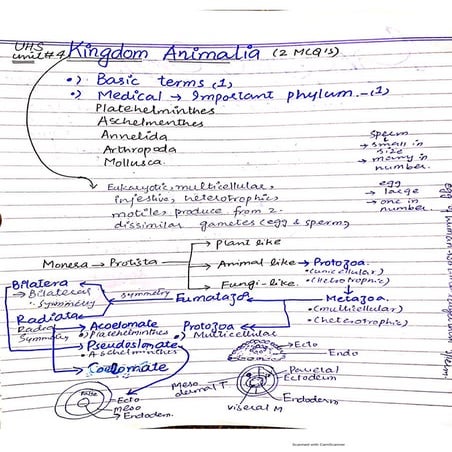 UHS
unit#4
Kingdom Animalia (2 MCQ's)
•) Basic terms (1)
•) Medical → Important phylum.-(1)
Platehelminthes
Aschelmenthes
Annelida
Arthropoda
Mollusca.
sperm
→ small in
size
→ many in
number.
egg
→ large
→ one in
number.
Eukaryotic, multicellular,
injestive, heterotrophic,
motile, produce from 2
dissimilar gametes (egg & sperm)
→ Plant like
Monera → Protista → Animal like → Protozoa.
• (unicellular)
• (Hetrotrophic)
→ Fungi-like.
Bilatera
→ Bilateral
symmetry
symmetry
Eumatazoa
Metazoa.
• (multicellular)
• (heterotrophic)
Radiata
Radial
Symmetry
→ Acoelomate
• Platehelminthes
Protozoa
•) Multicellular
→ Pseudoslomate
• Aschelminthes
→ Coelomate
→ Ecto
Endo
→ Parietal
Ectoderm
Endoderm
Mesodermal T
viseral M
False
→ Ecto
→ meso
→ Endoderm.
Scanned with CamScanner